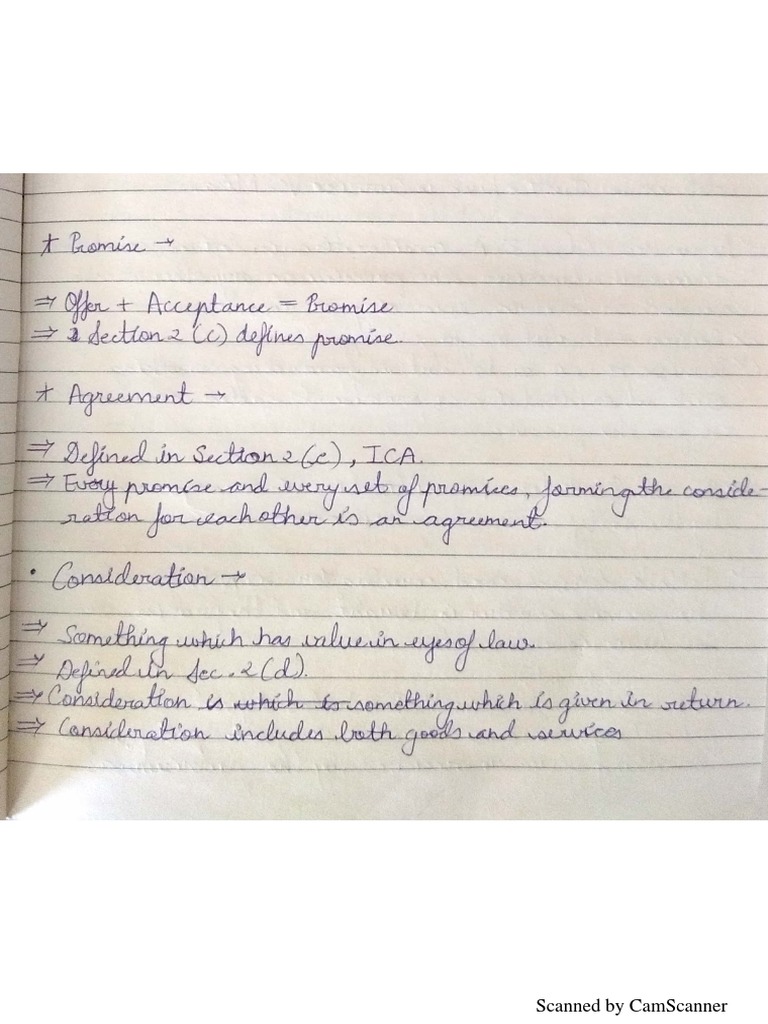 * Promise →
⇒ Offer + Acceptance = Promise
⇒ Section 2 (c) defines promise.
* Agreement →
⇒ Defined in Section 2 (e), ICA.
⇒ Every promise and every set of promises, forming the conside-
ration for each other is an agreement.
• Consideration →
⇒ Something which has value in eyes of law.
⇒ Defined in Sec. 2 (d).
⇒ Consideration is which is something which is given in return.
⇒ Consideration includes both goods and services
Scanned by CamScanner